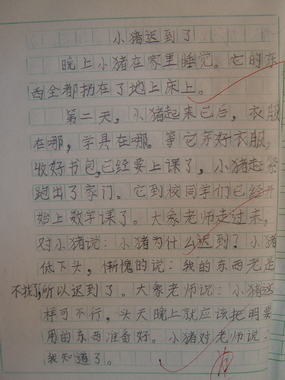 小猪迟到了
晚上小猪在家里睡觉。它的东
西全都扔在了地上床上。
第二天，小猪起来已后，衣服
在哪，学具在哪。等它弄好衣服，
收好书包，已经要上课了，小猪起
跑出了家门。它到校同学们已经开
始上数学课了。大象老师走过来，
对小猪说：小猪为什么迟到了？小猪
低下头，惭愧的说：我的东西老是
不找了，所以迟到了。大象老师说：小猪这
样可不行，头天晚上就应该把明天
用的东西准备好。小猪对老师说：
我知道了。